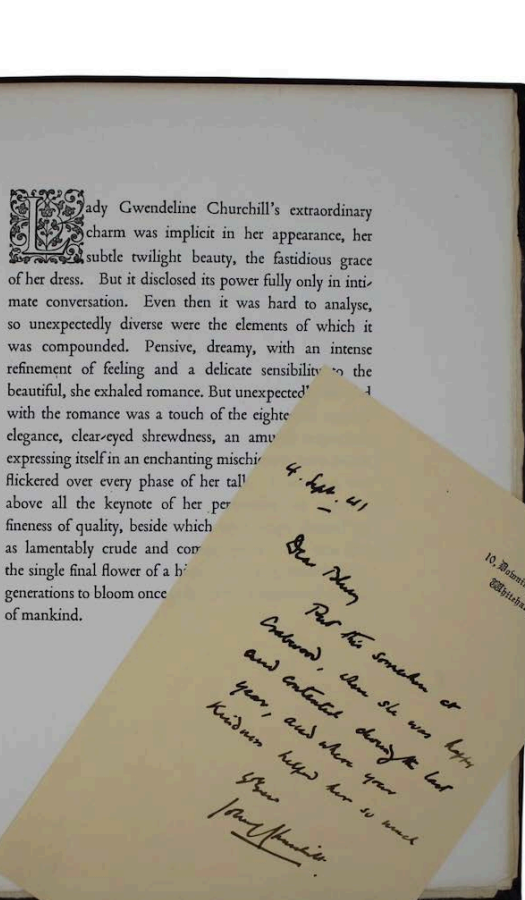 Lady Gwendeline Churchill's extraordinary
charm was implicit in her appearance, her
subtle twilight beauty, the fastidious grace
of her dress. But it disclosed its power fully only in inti-
mate conversation. Even then it was hard to analyse,
so unexpectedly diverse were the elements of which it
was compounded. Pensive, dreamy, with an intense
refinement of feeling and a delicate sensibility to the
beautiful, she exhaled romance. But unexpectedl
with the romance was a touch of the eighte
elegance, clear-eyed shrewdness, an amu
expressing itself in an enchanting mischie
flickered over every phase of her tal
above all the keynote of her per
fineness of quality, beside which
as lamentably crude and com
the single final flower of a hi
generations to bloom once
of mankind.
10, Downin
Whiteha
4. Sept. 41
Dear
Put this somewhere at
Crabwood, where she was happy
and contented through the last
year, and where your
kindness helped her so much
Yours
John Churchill.